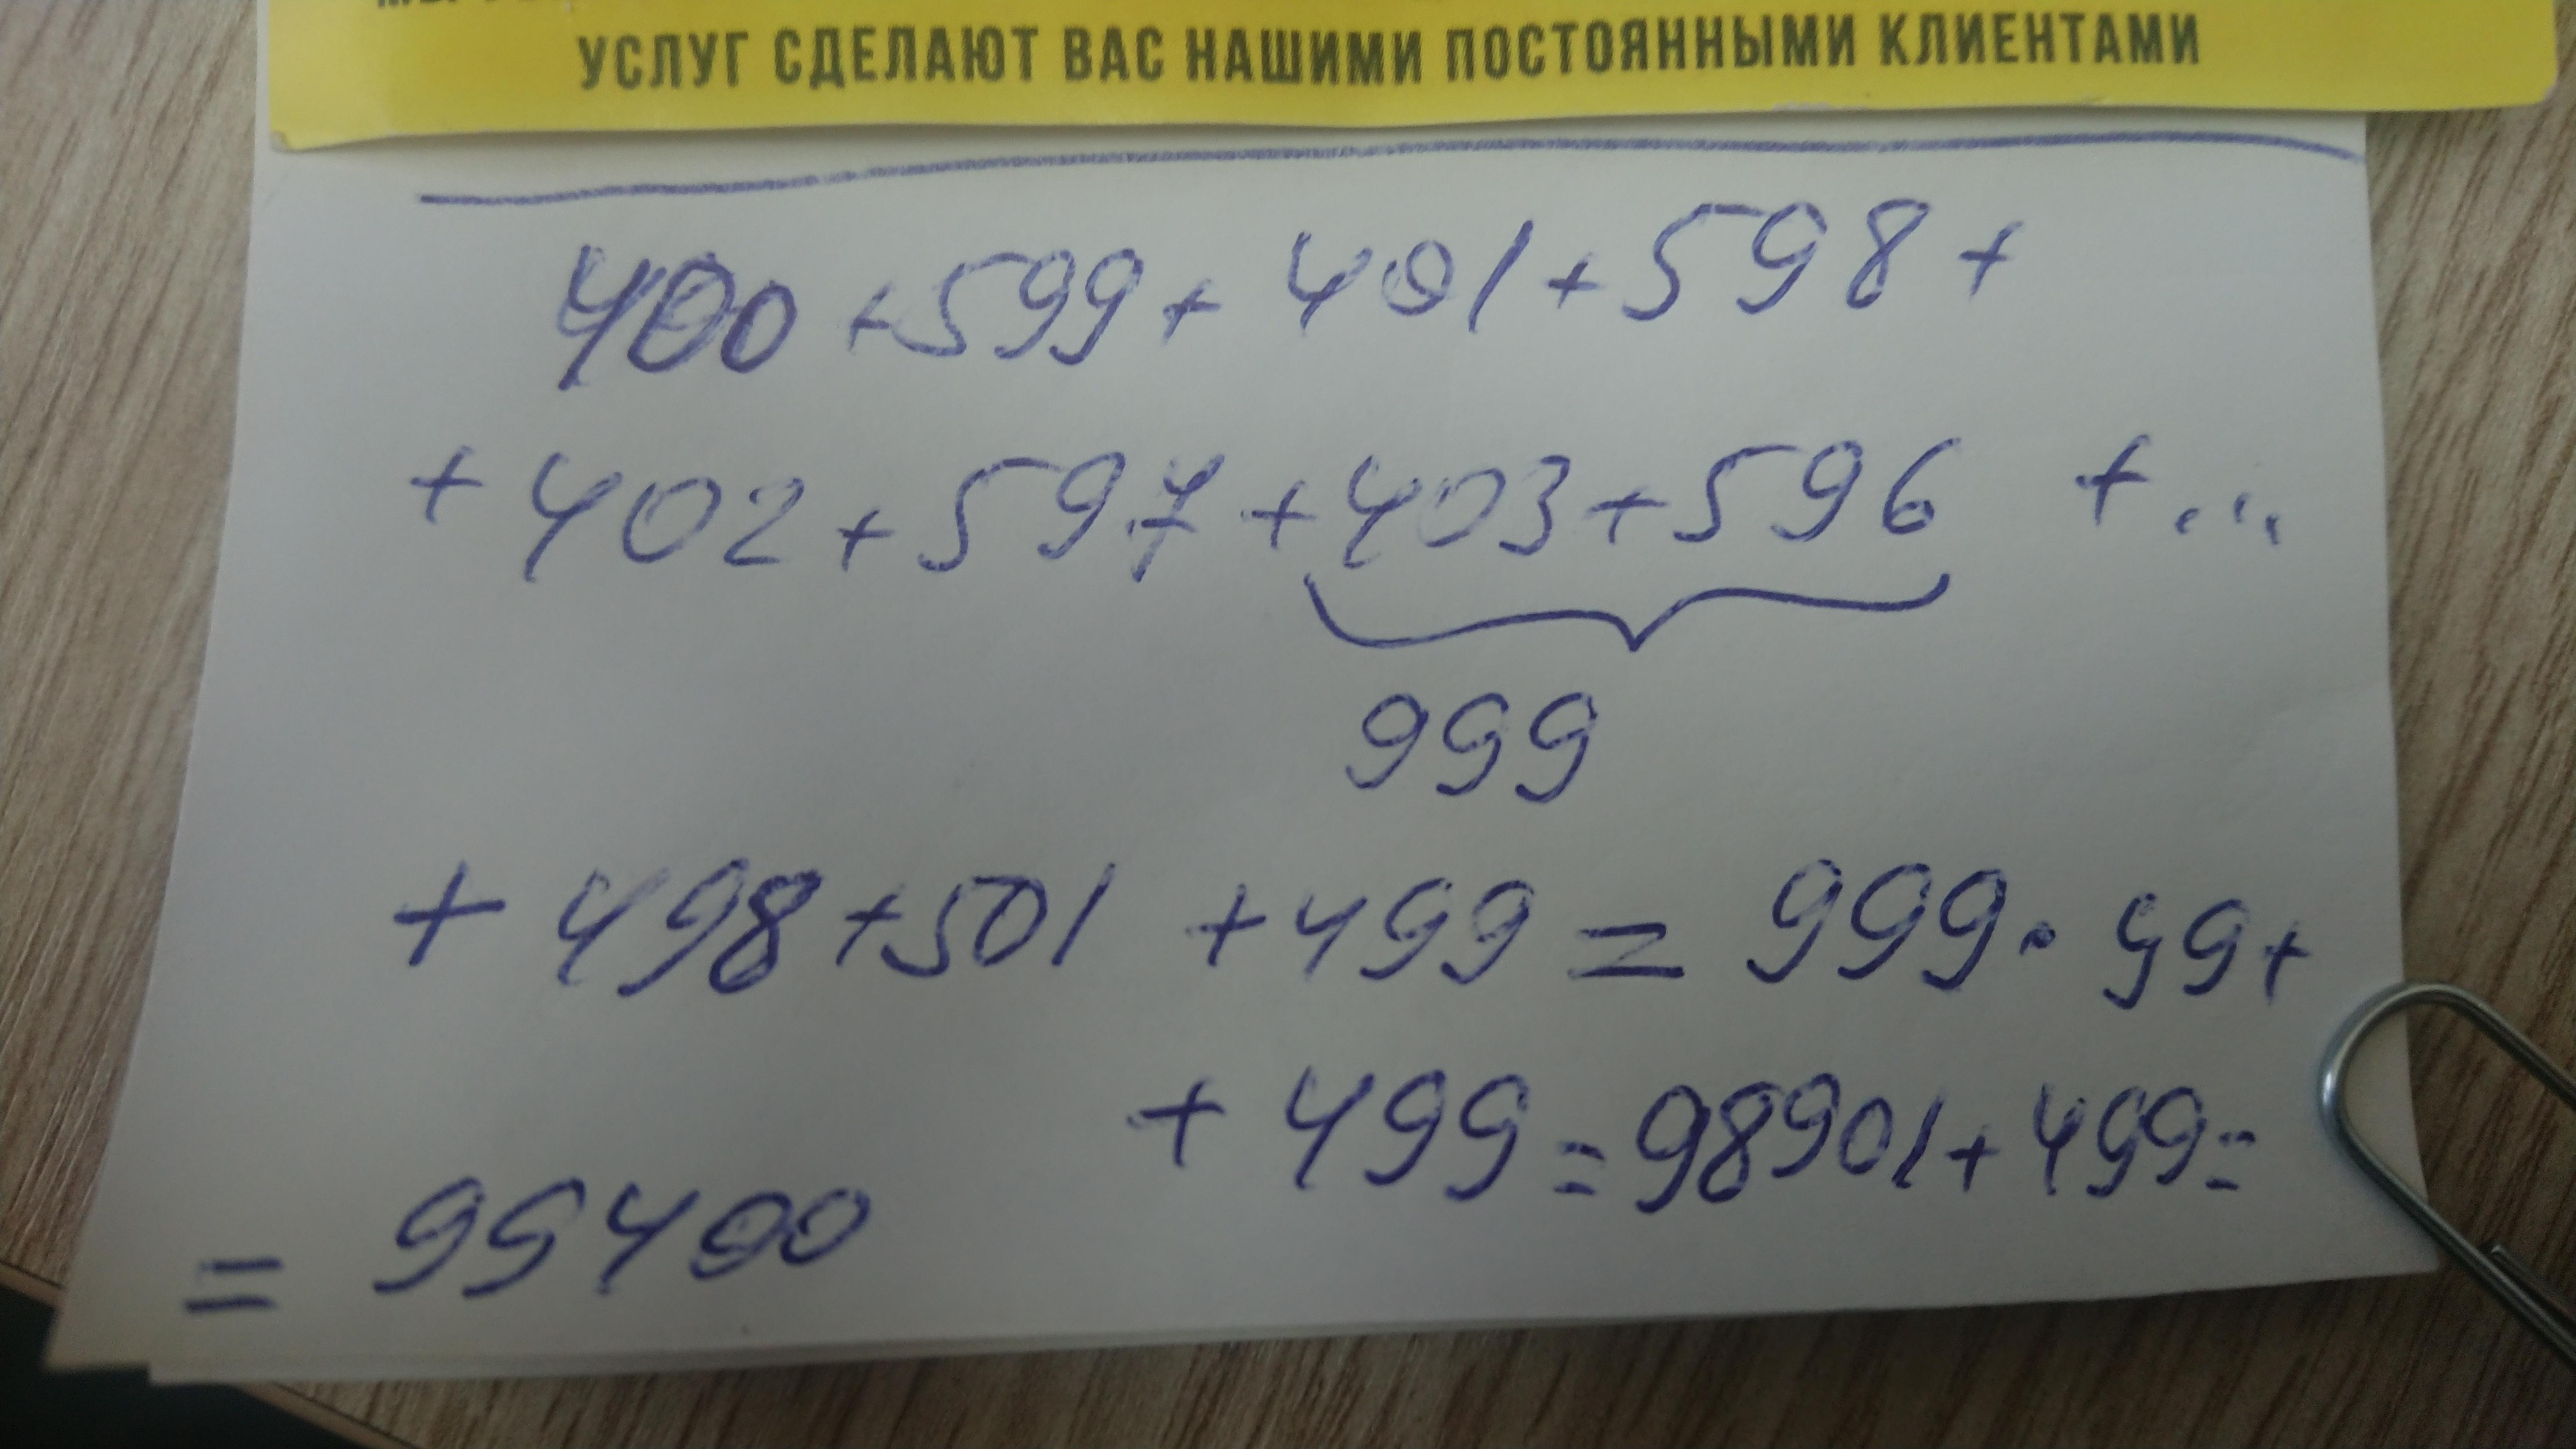 УСЛУГ СДЕЛАЮТ ВАС НАШИМИ ПОСТОЯННЫМИ КЛИЕНТАМИ
400 + 599 + 401 + 598 +
+ 402 + 597 + 403 + 596 + ...
999
+ 498 + 501 + 499 = 999 · 99 +
+ 499 = 98901 + 499 =
= 99400